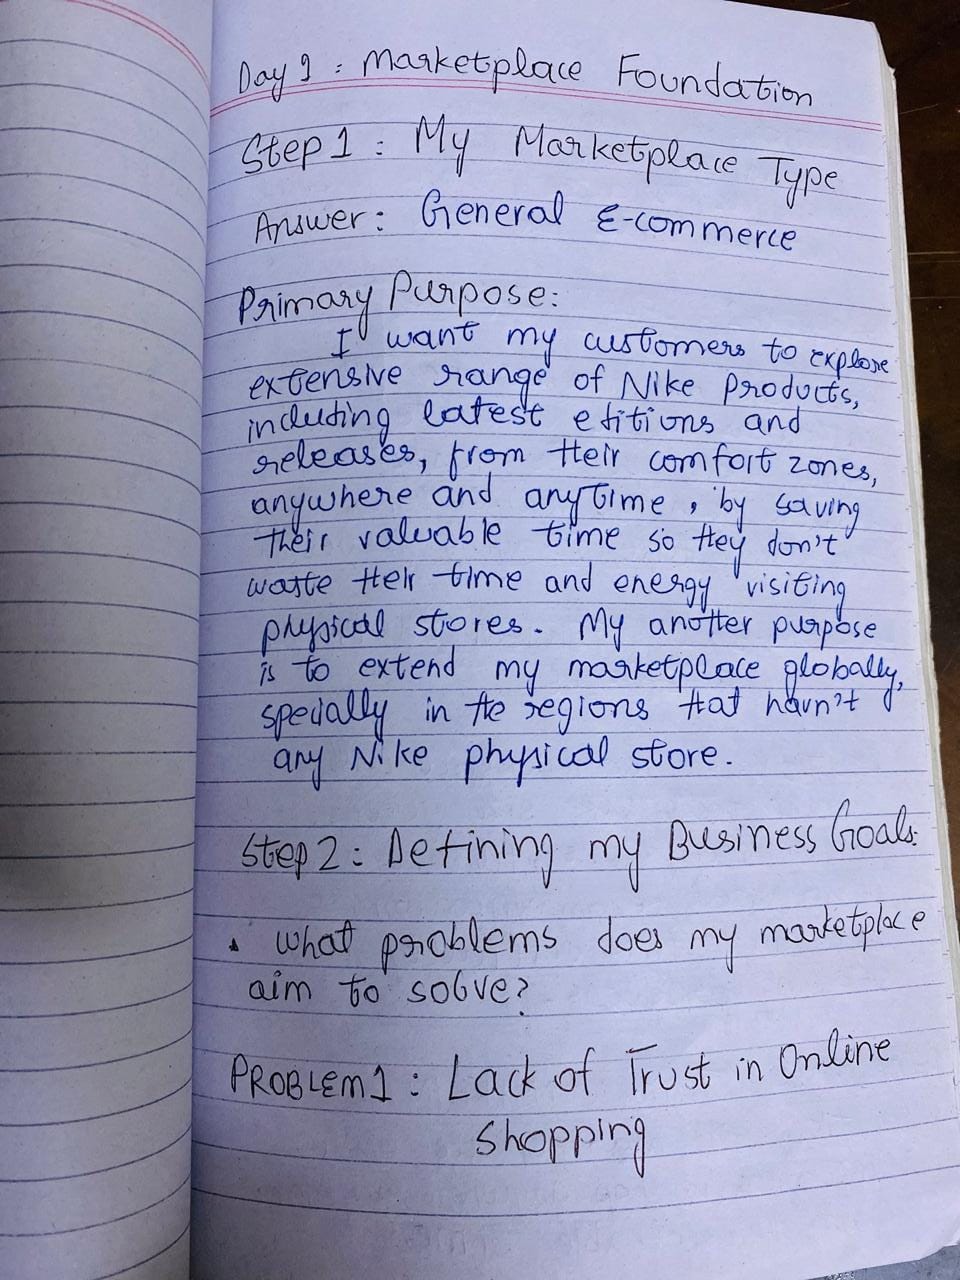 Day 1 : Marketplace Foundation
Step 1 : My Marketplace Type
Answer: General E-commerce
Primary Purpose:
I want my customers to explore
extensive range of Nike Products,
including latest editions and
releases, from their comfort zones,
anywhere and anytime, by saving
their valuable time so they don't
waste their time and energy visiting
physical stores. My another purpose
is to extend my marketplace globally,
specially in the regions that havn't
any Nike physical store.
Step 2 : Defining my Business Goals:
• What problems does my marketplace
aim to solve?
PROBLEM 1 : Lack of Trust in Online
Shopping